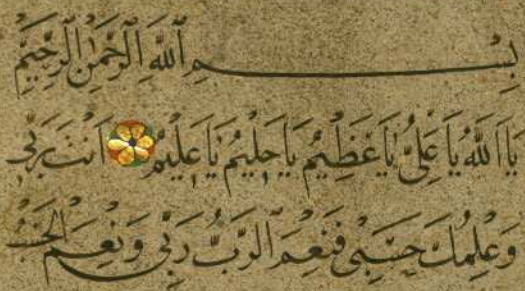 بِسْمِ ٱللَّهِ ٱلرَّحْمَٰنِ ٱلرَّحِيمِ
يَا اَللّٰهُ يَا عَلِيُّ يَا عَظِيْمُ يَا حَلِيْمُ يَا عَلِيْمُ اَنْتَ رَبِّي
وَعِلْمُكَ حَسْبِي فَنِعْمَ الرَّبُّ رَبِّي وَنِعْمَ الْحَسْبُ